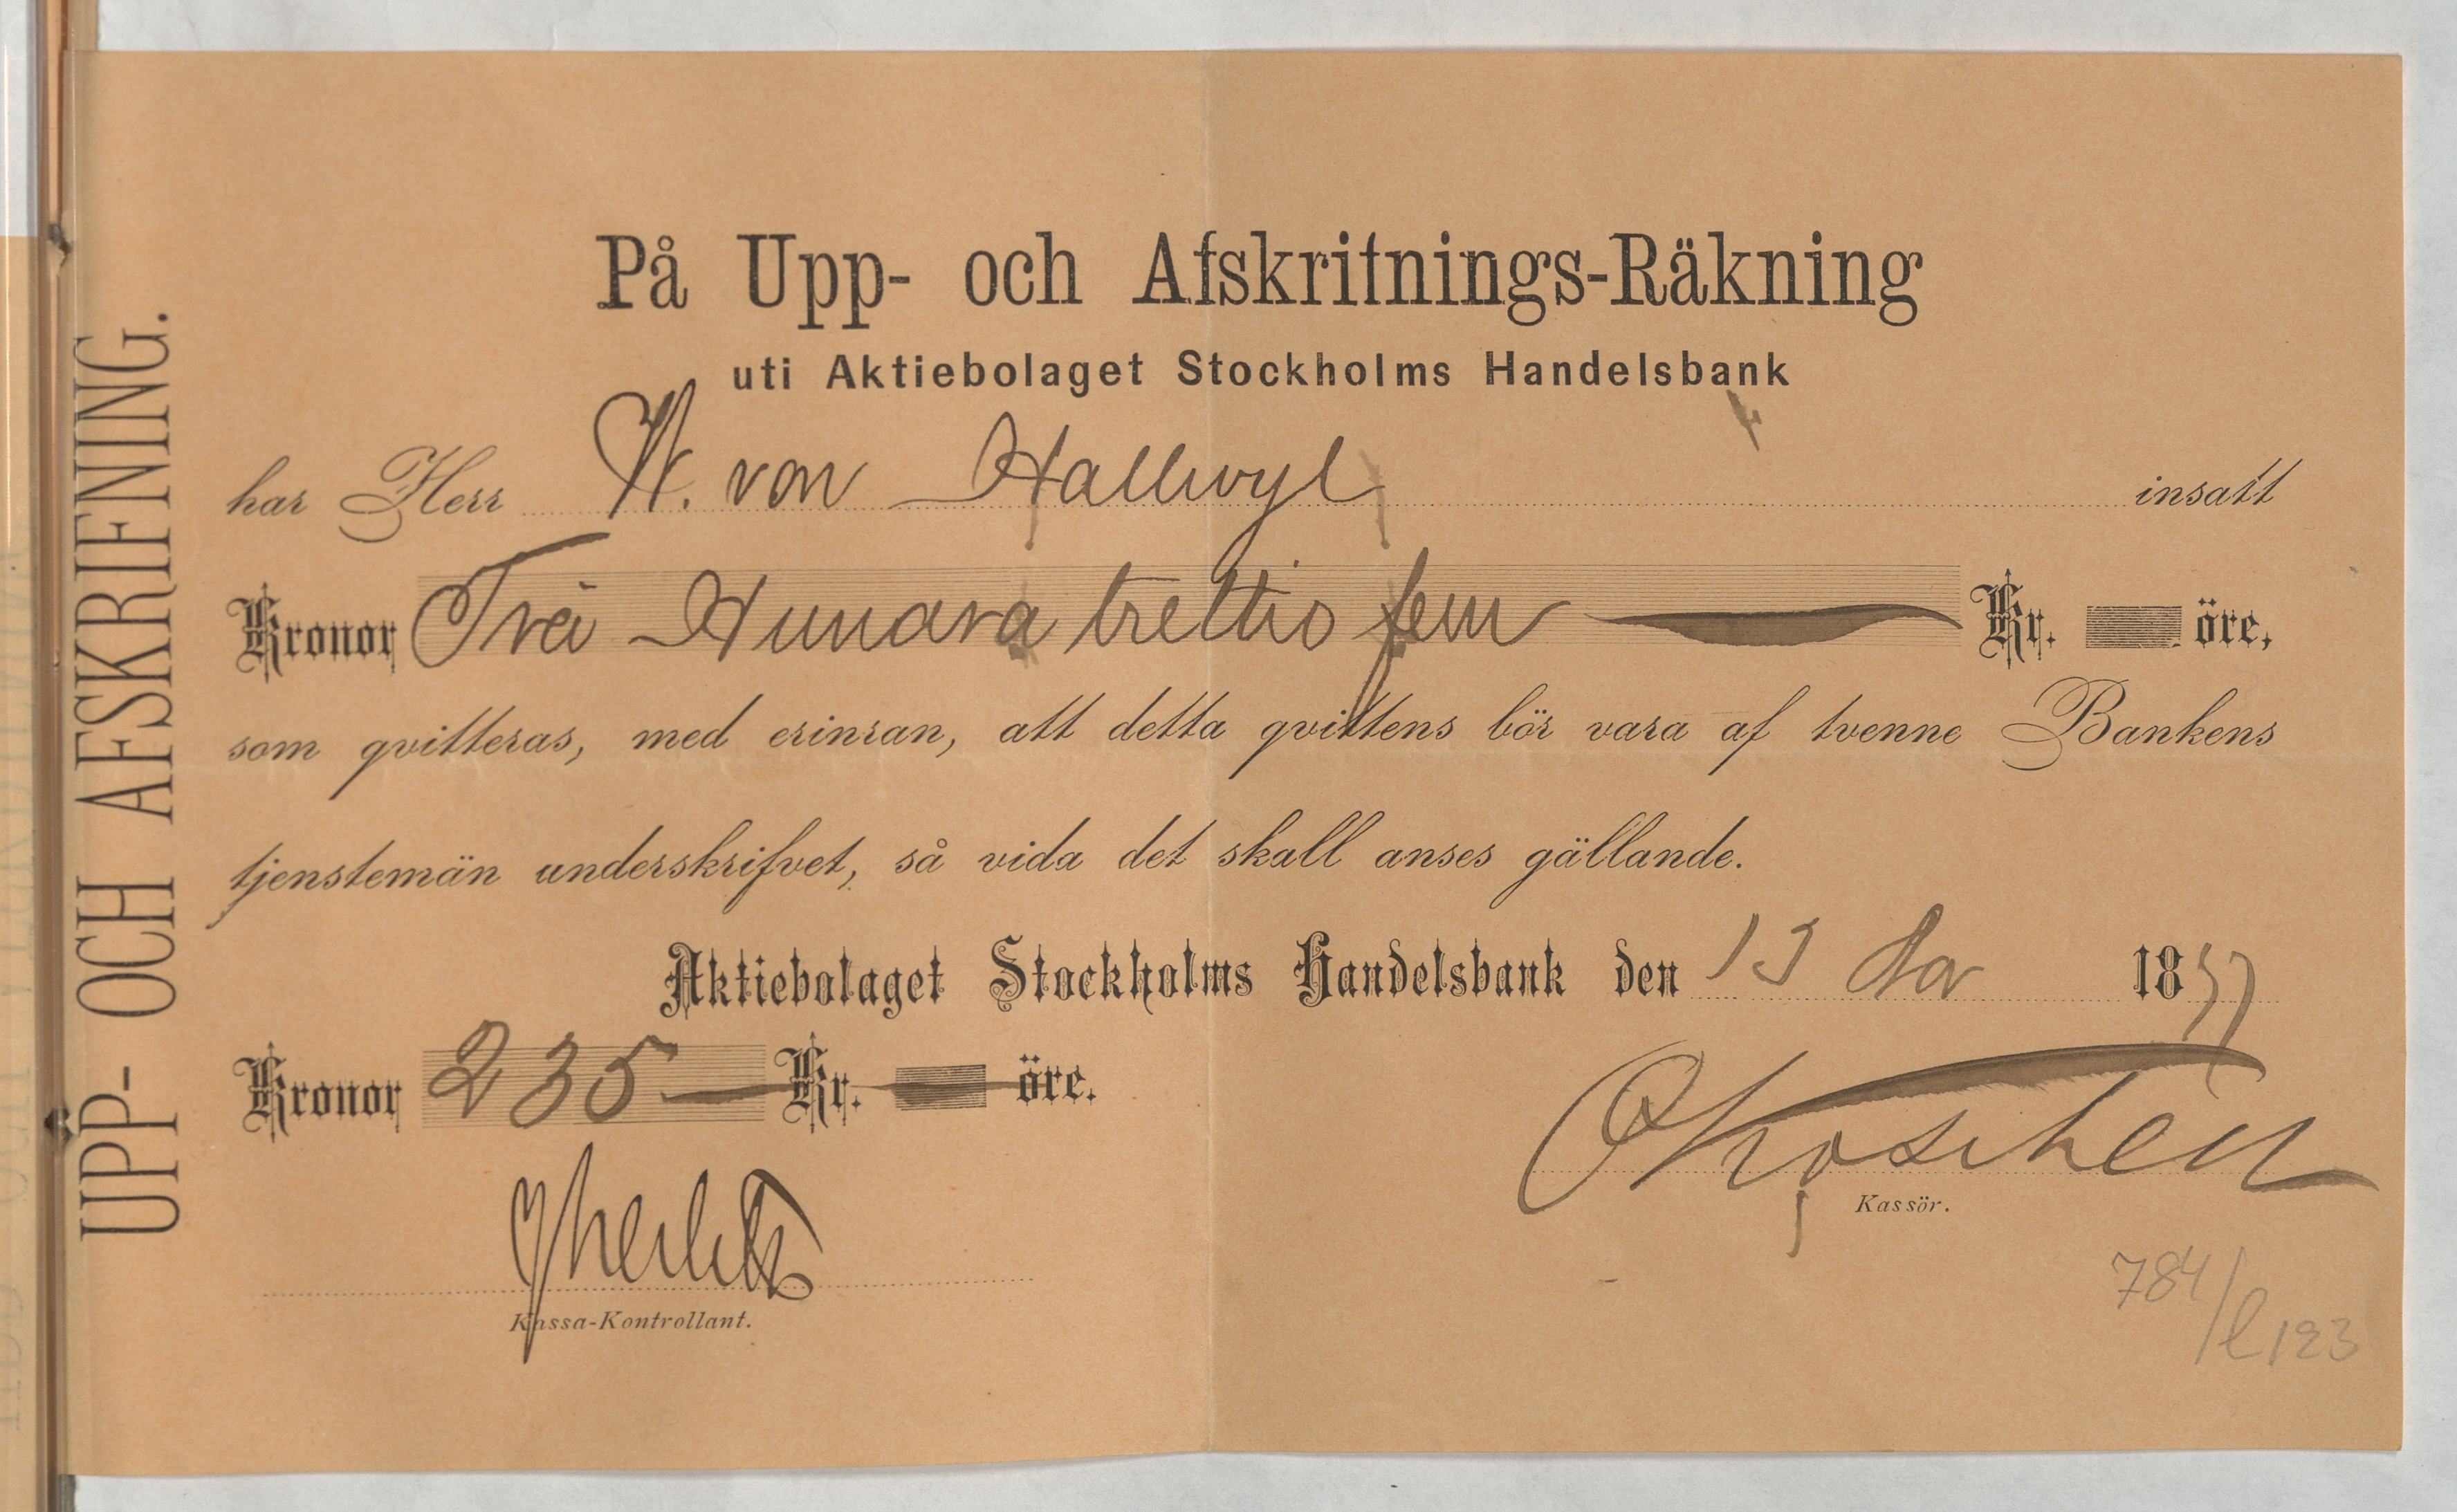 UPP- OCH AFSKRIFNING.
På Upp- och Afskrifnings-Räkning
uti Aktiebolaget Stockholms Handelsbank
har Herr W. von Hallwyl insatt
Kronor Två Hundra trettio fem Kr. öre,
som qvitteras, med erinran, att detta qvittens bör vara af tvenne Bankens
tjenstemän underskrifvet, så vida det skall anses gällande.
Aktiebolaget Stockholms Handelsbank den 13 Nov 18
Kronor 235 Kr. öre.
Kassör.
Kassa-Kontrollant.
784/l 123